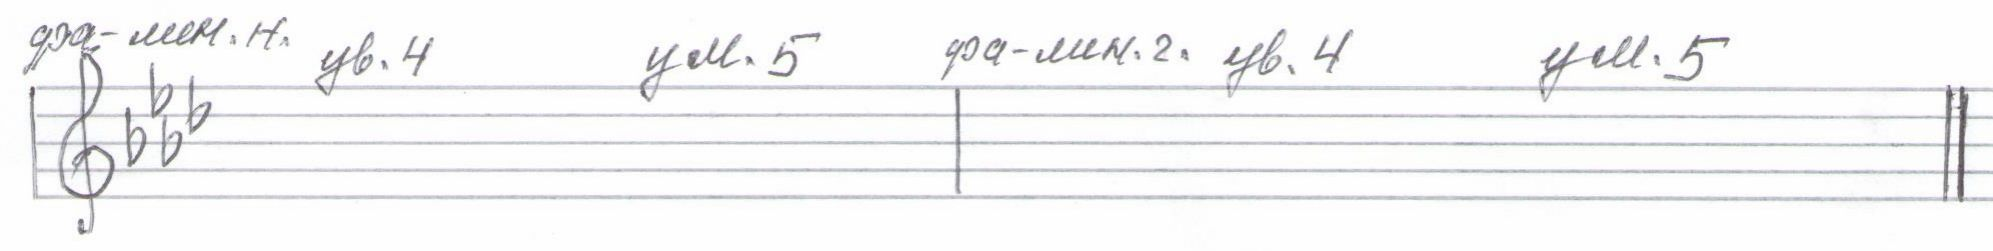 фа-мин.н. ув.4 ум.5 фа-мин.г. ув.4 ум.5